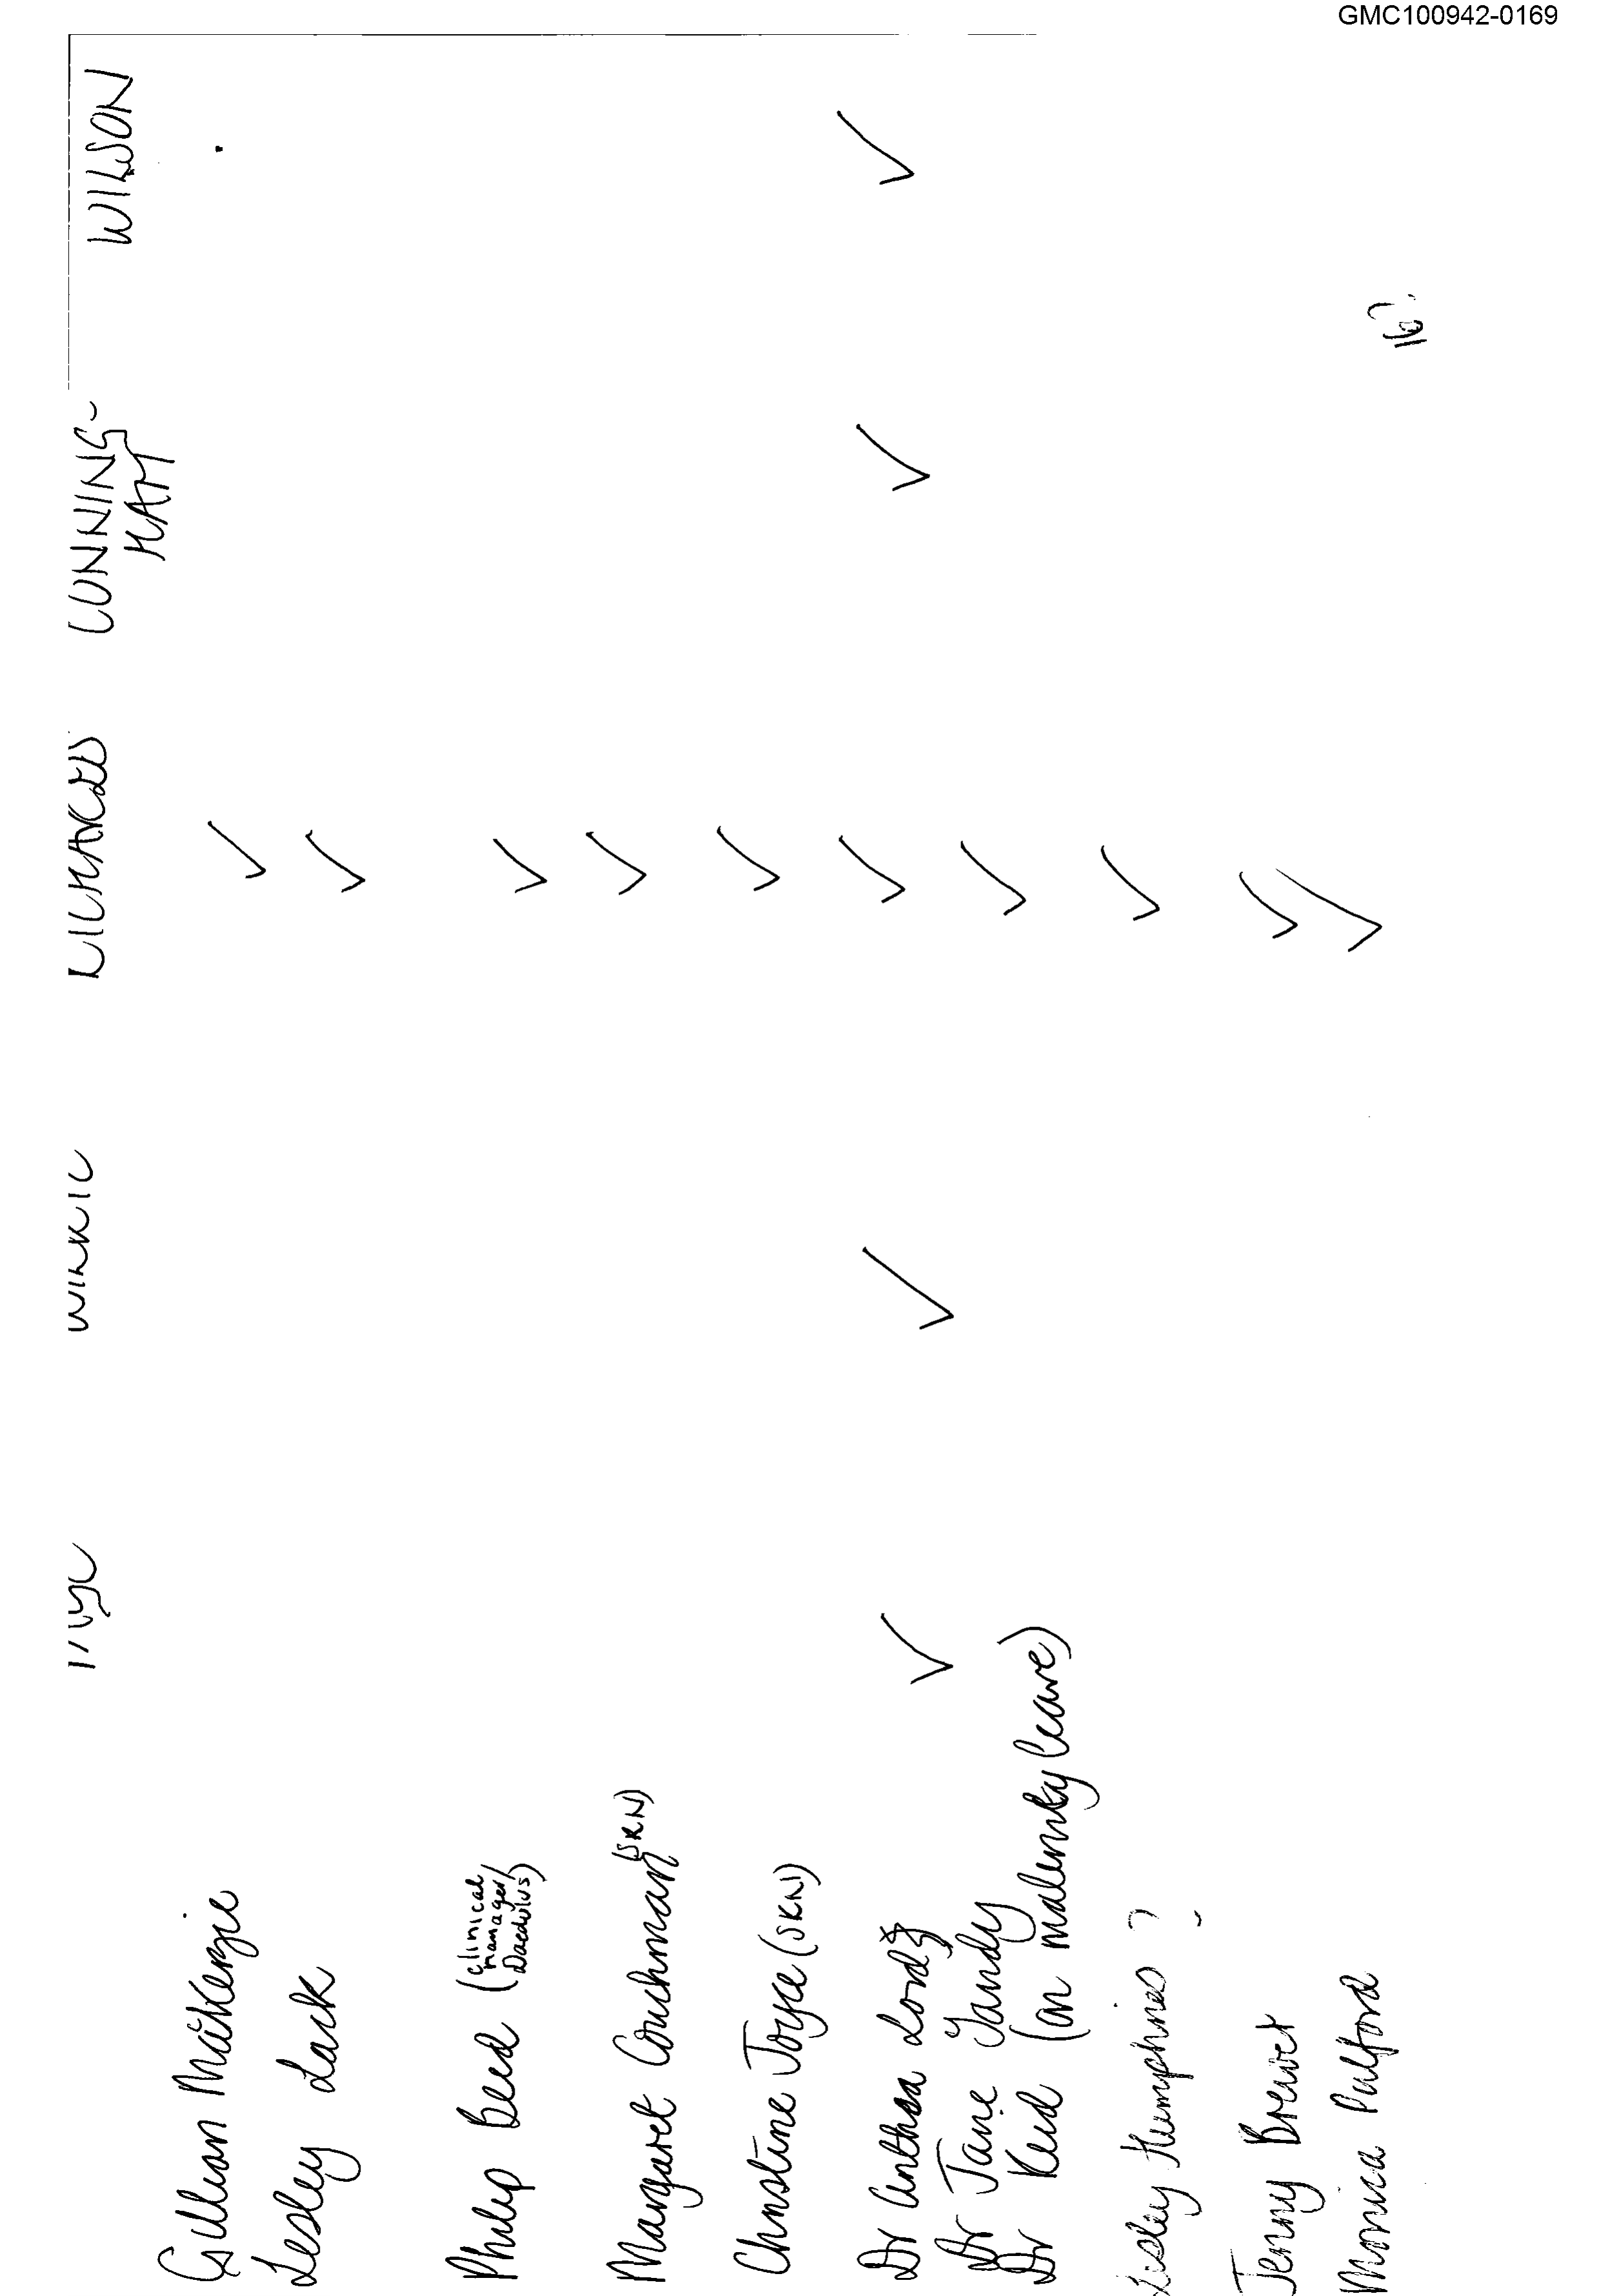 GMC100942-0169
WILKIE RICHARDS CUNNING- WILSON
HAM
Gillian Mackenzie ✓
Lesley Lack ✓
Philip Beed (clinical manager, Daedalus) ✓
Margaret Couchman (SRN) ✓
Christine Joyce (SRN) ✓
Dr Althea Lord ✓ ✓ ✓ ✓ ✓
Dr Jane Tandy ✓
Dr Reid (on maternity leave)
Lesley Humphries ? ✓
Jenny Brewer ✓
Monica Pulford ✓